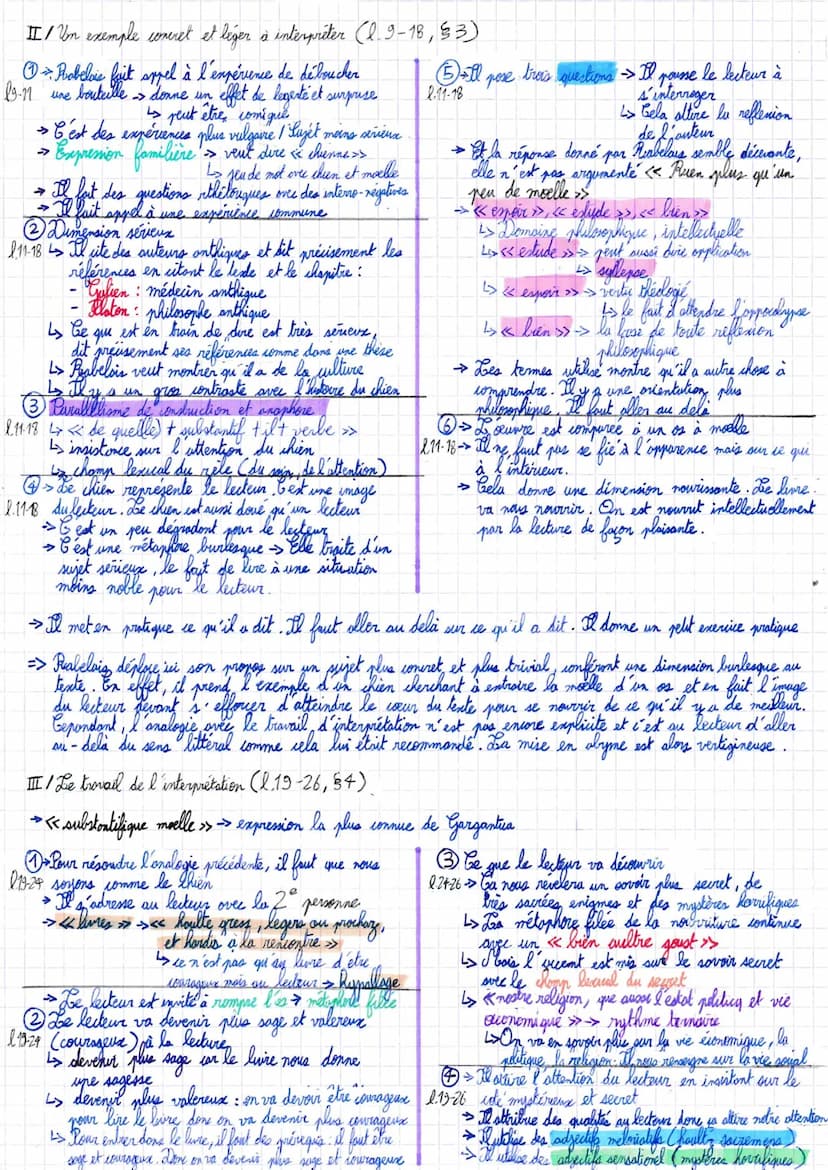 II/ Un exemple concret et léger à interpréter (l.9-18, §3)
① → Rabelais fait appel à l'expérience de déboucher
l9-11 une bouteille → donne un effet de legerté et surprise
↳ peut être comique
→ C'est des expériences plus vulgaire / Sujet moins sérieux
→ Expression familière → veut dire << chienne >>
↳ jeu de mot avec chien et moelle
→ Il fait des questions rhétoriques avec des interro-négatives
→ Il fait appel à une expérience commune
② Dimension sérieux
l.11-18 ↳ Il cite des auteurs anthiques et dit précisement les
références en citant le texte et le chapitre :
- Galien : médecin anthique
- Platon : philosophe anthique
↳ Ce qui est en train de dire est très sérieux,
dit précisement ses références comme dans une thèse
↳ Rabelais veut montrer qu'il a de la culture
↳ Il y a un gros contraste avec l'histoire du chien
③ Parallélisme de construction et anaphore
l.11-18 ↳ << de quelle) + substantif + il + verbe >>
↳ insistance sur l'attention du chien
↳ champ lexical du zèle (du soin, de l'attention)
④ → Le chien représente le lecteur. C'est une image
l.11-18 du lecteur. Le chien est aussi doué qu'un lecteur
→ C'est un peu dégradant pour le lecteur
→ C'est une métaphore burlesque → Elle traite d'un
sujet sérieux, le fait de lire à une situation
moins noble pour le lecteur.
⑤ → Il pose trois questions → Il pousse le lecteur à
l.11-18 s'interroger
↳ Cela attire la reflexion
de l'auteur
→ Et la réponse donné par Rabelais semble décevante,
elle n'est pas argumenté << Rien plus qu'un
peu de moelle >>
→ << espoir >>, << estude >>, << bien >>
↳ Domaine philosophique, intellectuelle
↳ << estude >> → peut aussi dire application
↳ syllepse
↳ << espoir >> → vertu théologié
↳ le fait d'attendre l'appocalypse
↳ << bien >> → la base de toute réflexion
philosophique
→ Les termes utilisé montre qu'il a autre chose à
comprendre. Il y a une orientation plus
philosophique. Il faut aller au delà
⑥ → L'oeuvre est comparée à un os à moelle
l.11-18 → Il ne faut pas se fié à l'apparence mais sur ce qui
à l'intérieur.
→ Cela donne une dimension nourissante. Le livre
va nous nourrir. On est nourrit intellectuellement
par la lecture de façon plaisante.
→ Il met en pratique ce qu'il a dit. Il faut aller au delà sur ce qu'il a dit. Il donne un petit exercice pratique
=> Rabelais déplace ici son propos sur un sujet plus concret, et plus trivial, conférant une dimension burlesque au
texte. En effet, il prend l'exemple d'un chien cherchant à extraire la moelle d'un os et en fait l'image
du lecteur devant s'efforcer d'atteindre le cœur du texte pour se nourrir de ce qu'il y a de meilleur.
Cependant, l'analogie avec le travail d'interprétation n'est pas encore explicite et c'est au lecteur d'aller
au-delà du sens littéral comme cela lui était recommandé. La mise en abyme est alors vertigineuse.
III/ Le travail de l'interprétation (l.19-26, §4)
→ << substantifique moelle >> → expression la plus connue de Gargantua
① → Pour résoudre l'analogie précédente, il faut que nous
l.19-24 soyons comme le chien
→ Il s'adresse au lecteur avec la 2e personne
→ << livres >> → << haulte gress, legers au prochaz,
et hardis a la rencontre >>
↳ ce n'est pas qu'au livre d'être
courageux mais au lecteur → Hypallage
→ Le lecteur est invité à rompre l'os → métaphore filée
② Le lecteur va devenir plus sage et valereux
l.19-24 (courageux) à la lecture
↳ devenir plus sage car le livre nous donne
une sagesse
↳ devenir plus valereux : on va devoir être courageux
pour lire le livre donc on va devenir plus courageux
↳ Pour entrer dans le livre, il faut des prérequis : il faut être
sage et courageux. Donc on va devenir plus sage et courageux
③ Ce que le lecteur va découvrir
l.24-26 → Ca nous revelera un savoir plus secret, de
très sacrées enigmes et des mystères horrifiques
↳ La métaphore filée de la nourriture continue
avec un << bien aultre goust >>
↳ Mais l'accent est mis sur le savoir secret
avec le champ lexical du secret
↳ << nostre religion, que aussi l'estat politicq et vie
œconomique >> → rythme ternaire
↳ On va en savoir plus sur la vie économique, la
politique, la religion. Il nous renseigne sur la vie social
④ → Il attire l'attention du lecteur en insitant sur le
l.19-26 côté mystérieux et secret
→ Il attribue des qualités au lecteur donc ça attire notre attention
→ Il utilise des adjectifs mélioratifs (haultz sacremens)
→ Il utilise des adjectifs sensationel (mystères horrifiques)